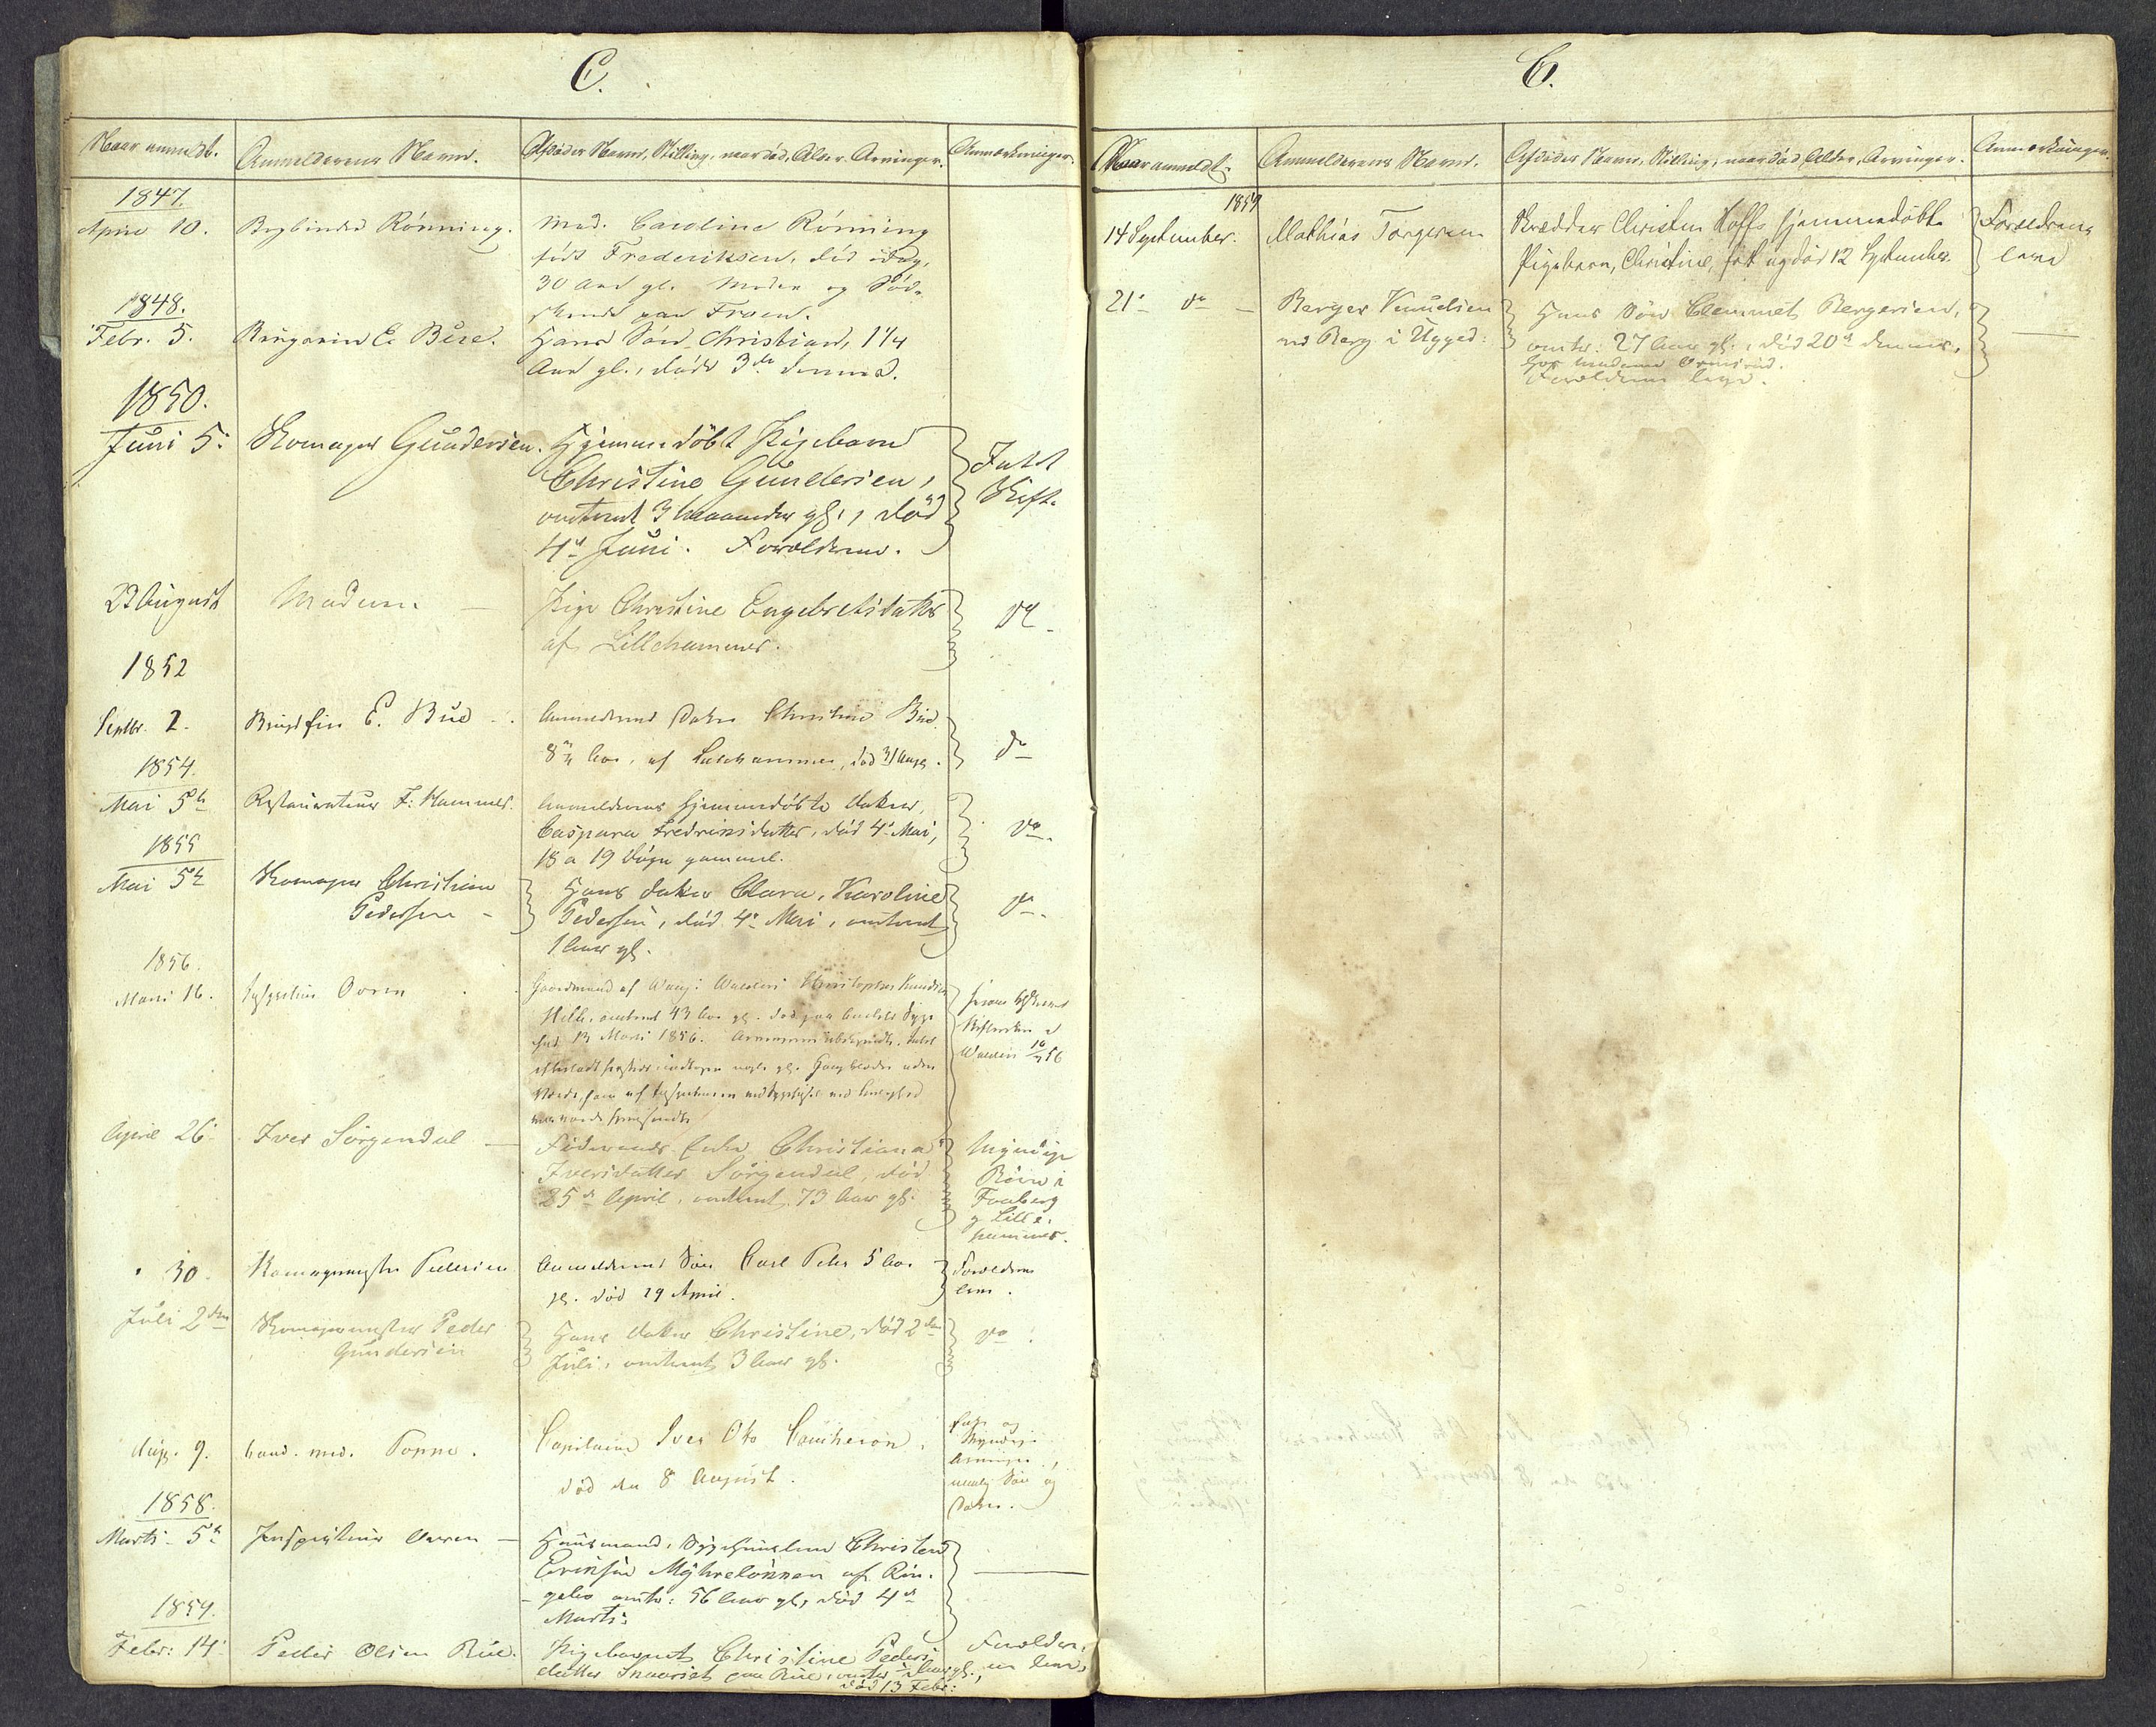 C.
Naar anmeldt. Anmelderens Navn. Afdødes Navn, Stilling, naar død, Alder, Arvinger. Anmærkninger.
1847.
April 10. Bogbinder Rønning. Mad. Caroline Rønning
født Frederiksen, død idag,
30 Aar gl. Moder og Sød-
skende paa Froen.
1848.
Febr. 5. E. Bue. Hans Søn Christian, 1 1/4
Aar gl., døde 3de dennes.
1850.
Juni 5. Skomager Gundersen. Hjemmedøbt Pigebarn
Christine Gundersen,
omtrent 3 Maaneder gl., død
4de Juni. Forældrene.
Intet
Skifte
23 August Madam — Pige Christine Engebretsdatter
af Lillehammer.
do
1852
Septbr. 2. E. Bue Anmelderens Datter Christine Bue
8 1/2 Aar, af Lillehammer, død 31 Aug.
do
1854.
Mai 5te Restaurateur F. Hammer. Anmelderens hjemmedøbte Datter,
Caspara Fredriksdatter, død 4de Mai,
18 a 19 Dage gammel.
do
1855
Mai 5te Skomager Christian
Pedersen - Hans Datter Clara Karoline
Pedersen, død 4de Mai, omtrent
1 Aar gl.
do
1856.
Marts 16. Inspecteur Owren Gaardmand af Wang i Walders Christopher Knudsen
Hille, omtrent 43 Aar gl. død paa Amtets Syge-
huus 13 Marts 1856. Arvingerne ubekjendt. Intet
efterladt
Walders 16/3 56
April 26. Iver Sørgendal — Føderaads Enke Christiana
Iversdatter Sørgendal, død
25de April, omtrent 73 Aar gl.
Myndige
Børn i
Faaberg
og Lille-
hammer.
" 30. Skomagermester Pedersen Anmelderens Søn Carl Peter 5 Aar
gl. død 29 April.
Forældrene
leve.
Juli 2den Skomagermester Peder
Gundersen Hans Datter Christine, død 2den
Juli, omtrent 3 Aar gl.
do
Aug. 9. Cand. med. Poppe. Capitaine Iver Otto Coucheron,
død den 8 August.
og
Myndige
Arvinger,
nemlig Søn og
Datter.
1858.
Marts 5te Inspecteur Owren — Huusmand, Christen
Eriksen Myhreløkken af Rin-
gebo omtr: 56 Aar gl, død 4de
Marts.
1859.
Febr: 14. Peder Olsen Rue. Pigebarnet Christine Peders-
datter paa Rue, omtr: Aar gl.,
død 13 Febr:
Forældre-
ne leve
C.
Naar anmeldt. Anmelderens Navn. Afdødes Navn, Stilling, naar død, Alder, Arvinger. Anmærkninger.
1859
14 September. Mathias Torgersen Skrædder Christen Hoffs hjemmedøbte
Pigebarn, Christine, født og død 12 September.
Forældrene
leve
21de do — Berger Knudsen
ved Berg i Hans Søn Clemmet Bergersen,
omtr: 27 Aar gl., død 20de dennes,
hos Madame
Forældrene leve.